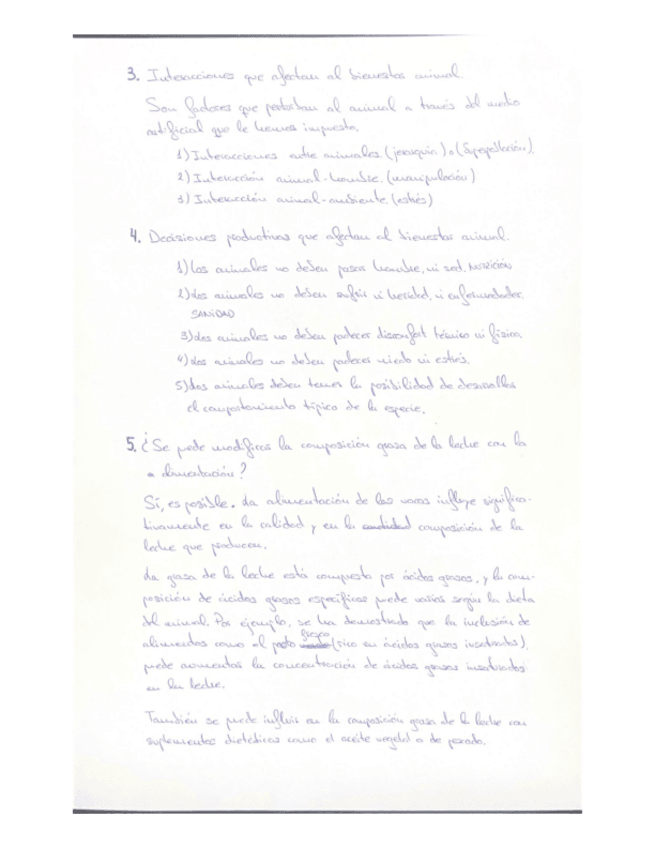 3. Interacciones que afectan al bienestar animal
Son factores que perturban al animal a través del medio
artificial que le hemos impuesto.
1) Interacciones entre animales. (jerarquía) o (Superpoblación).
2) Interacción animal-hombre. (manipulación)
3) Interacción animal-ambiente. (estrés)
4. Decisiones productivas que afectan al bienestar animal.
1) Los animales no deben pasar hambre, ni sed. NUTRICIÓN
2) Los animales no deben sufrir ni heridas, ni enfermedades.
SANIDAD
3) Los animales no deben padecer disconfort térmico ni físico.
4) Los animales no deben padecer miedo ni estrés.
5) Los animales deben tener la posibilidad de desarrollar
el comportamiento típico de la especie.
5. ¿Se puede modificar la composición grasa de la leche con la
alimentación?
Sí, es posible. La alimentación de las vacas influye significa-
tivamente en la calidad y en la cantidad composición de la
leche que producen.
La grasa de la leche está compuesta por ácidos grasos, y la com-
posición de ácidos grasos específicos puede variar según la dieta
del animal. Por ejemplo, se ha demostrado que la inclusión de
alimentos como el pasto fresco (rico en ácidos grasos insaturados),
puede aumentar la concentración de ácidos grasos insaturados
en la leche.
También se puede influir en la composición grasa de la leche con
suplementos dietéticos como el aceite vegetal o de pescado.